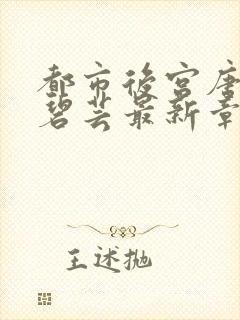 都市后宫唐
碧芸最新章
王述抛